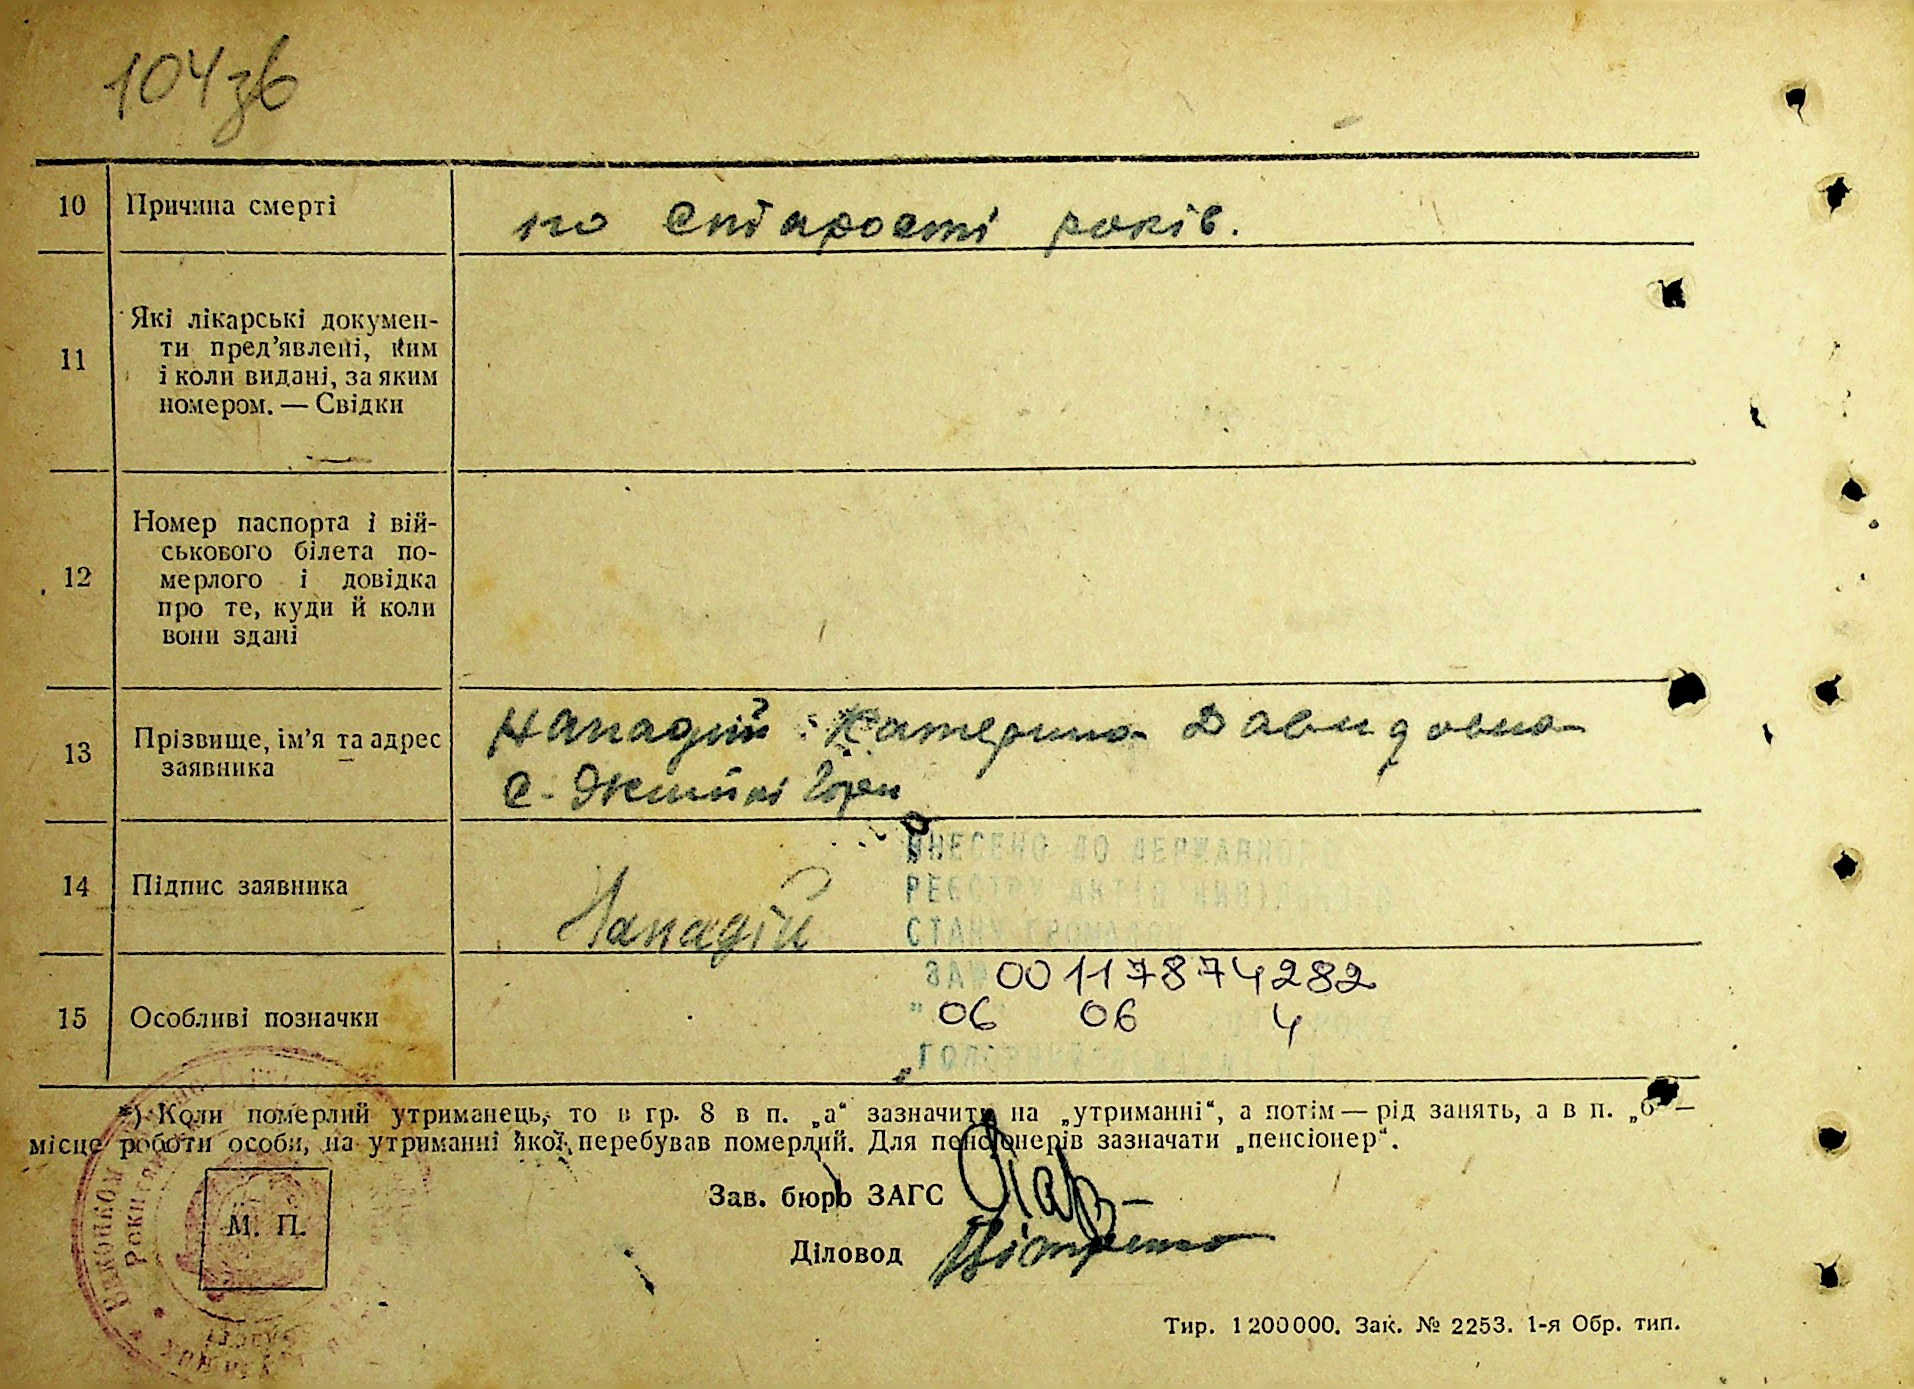 104зв
10 Причина смерті по старості років.
11 Які лікарські докумен-
ти пред’явлені, ким
і коли видані, за яким
номером. — Свідки
12 Номер паспорта і вій-
ськового білета по-
мерлого і довідка
про те, куди й коли
вони здані
13 Прізвище, ім’я та адрес
заявника
Нападій Катерина Давидовна
с.
14 Підпис заявника
Нападій
ВНЕСЕНО ДО ДЕРЖАВНОГО
РЕЄСТРУ АКТІВ ЦИВІЛЬНОГО
СТАНУ ГРОМАДЯН
ЗА № 00117874282
15 Особливі позначки
" 06 06 4
*) Коли померлий утриманець, то в гр. 8 в п. „а“ зазначить на „утриманні“, а потім — рід занять, а в п. „б“ —
місце роботи особи, на утриманні якої перебував померлий. Для пенсіонерів зазначати „пенсіонер“.
Зав. бюро ЗАГС
Діловод
М. П.
Виконком
Рокитн
Тир. 1200000. Зак. № 2253. 1-я Обр. тип.